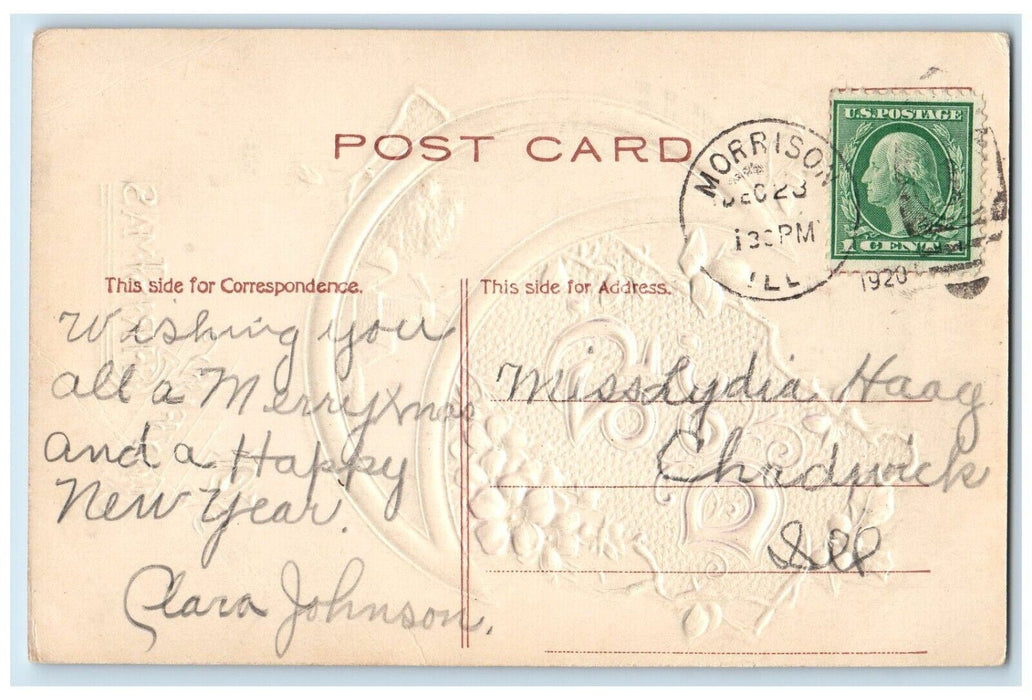 POST CARD
U.S. POSTAGE
1 CENT
MORRISON
DEC 23
130 PM
ILL
1920
This side for Correspondence.
This side for Address.
Wishing you
all a Merry Xmas
and a Happy
New Year.
Clara Johnson.
Miss Lydia Haag
Chadwick
Ill